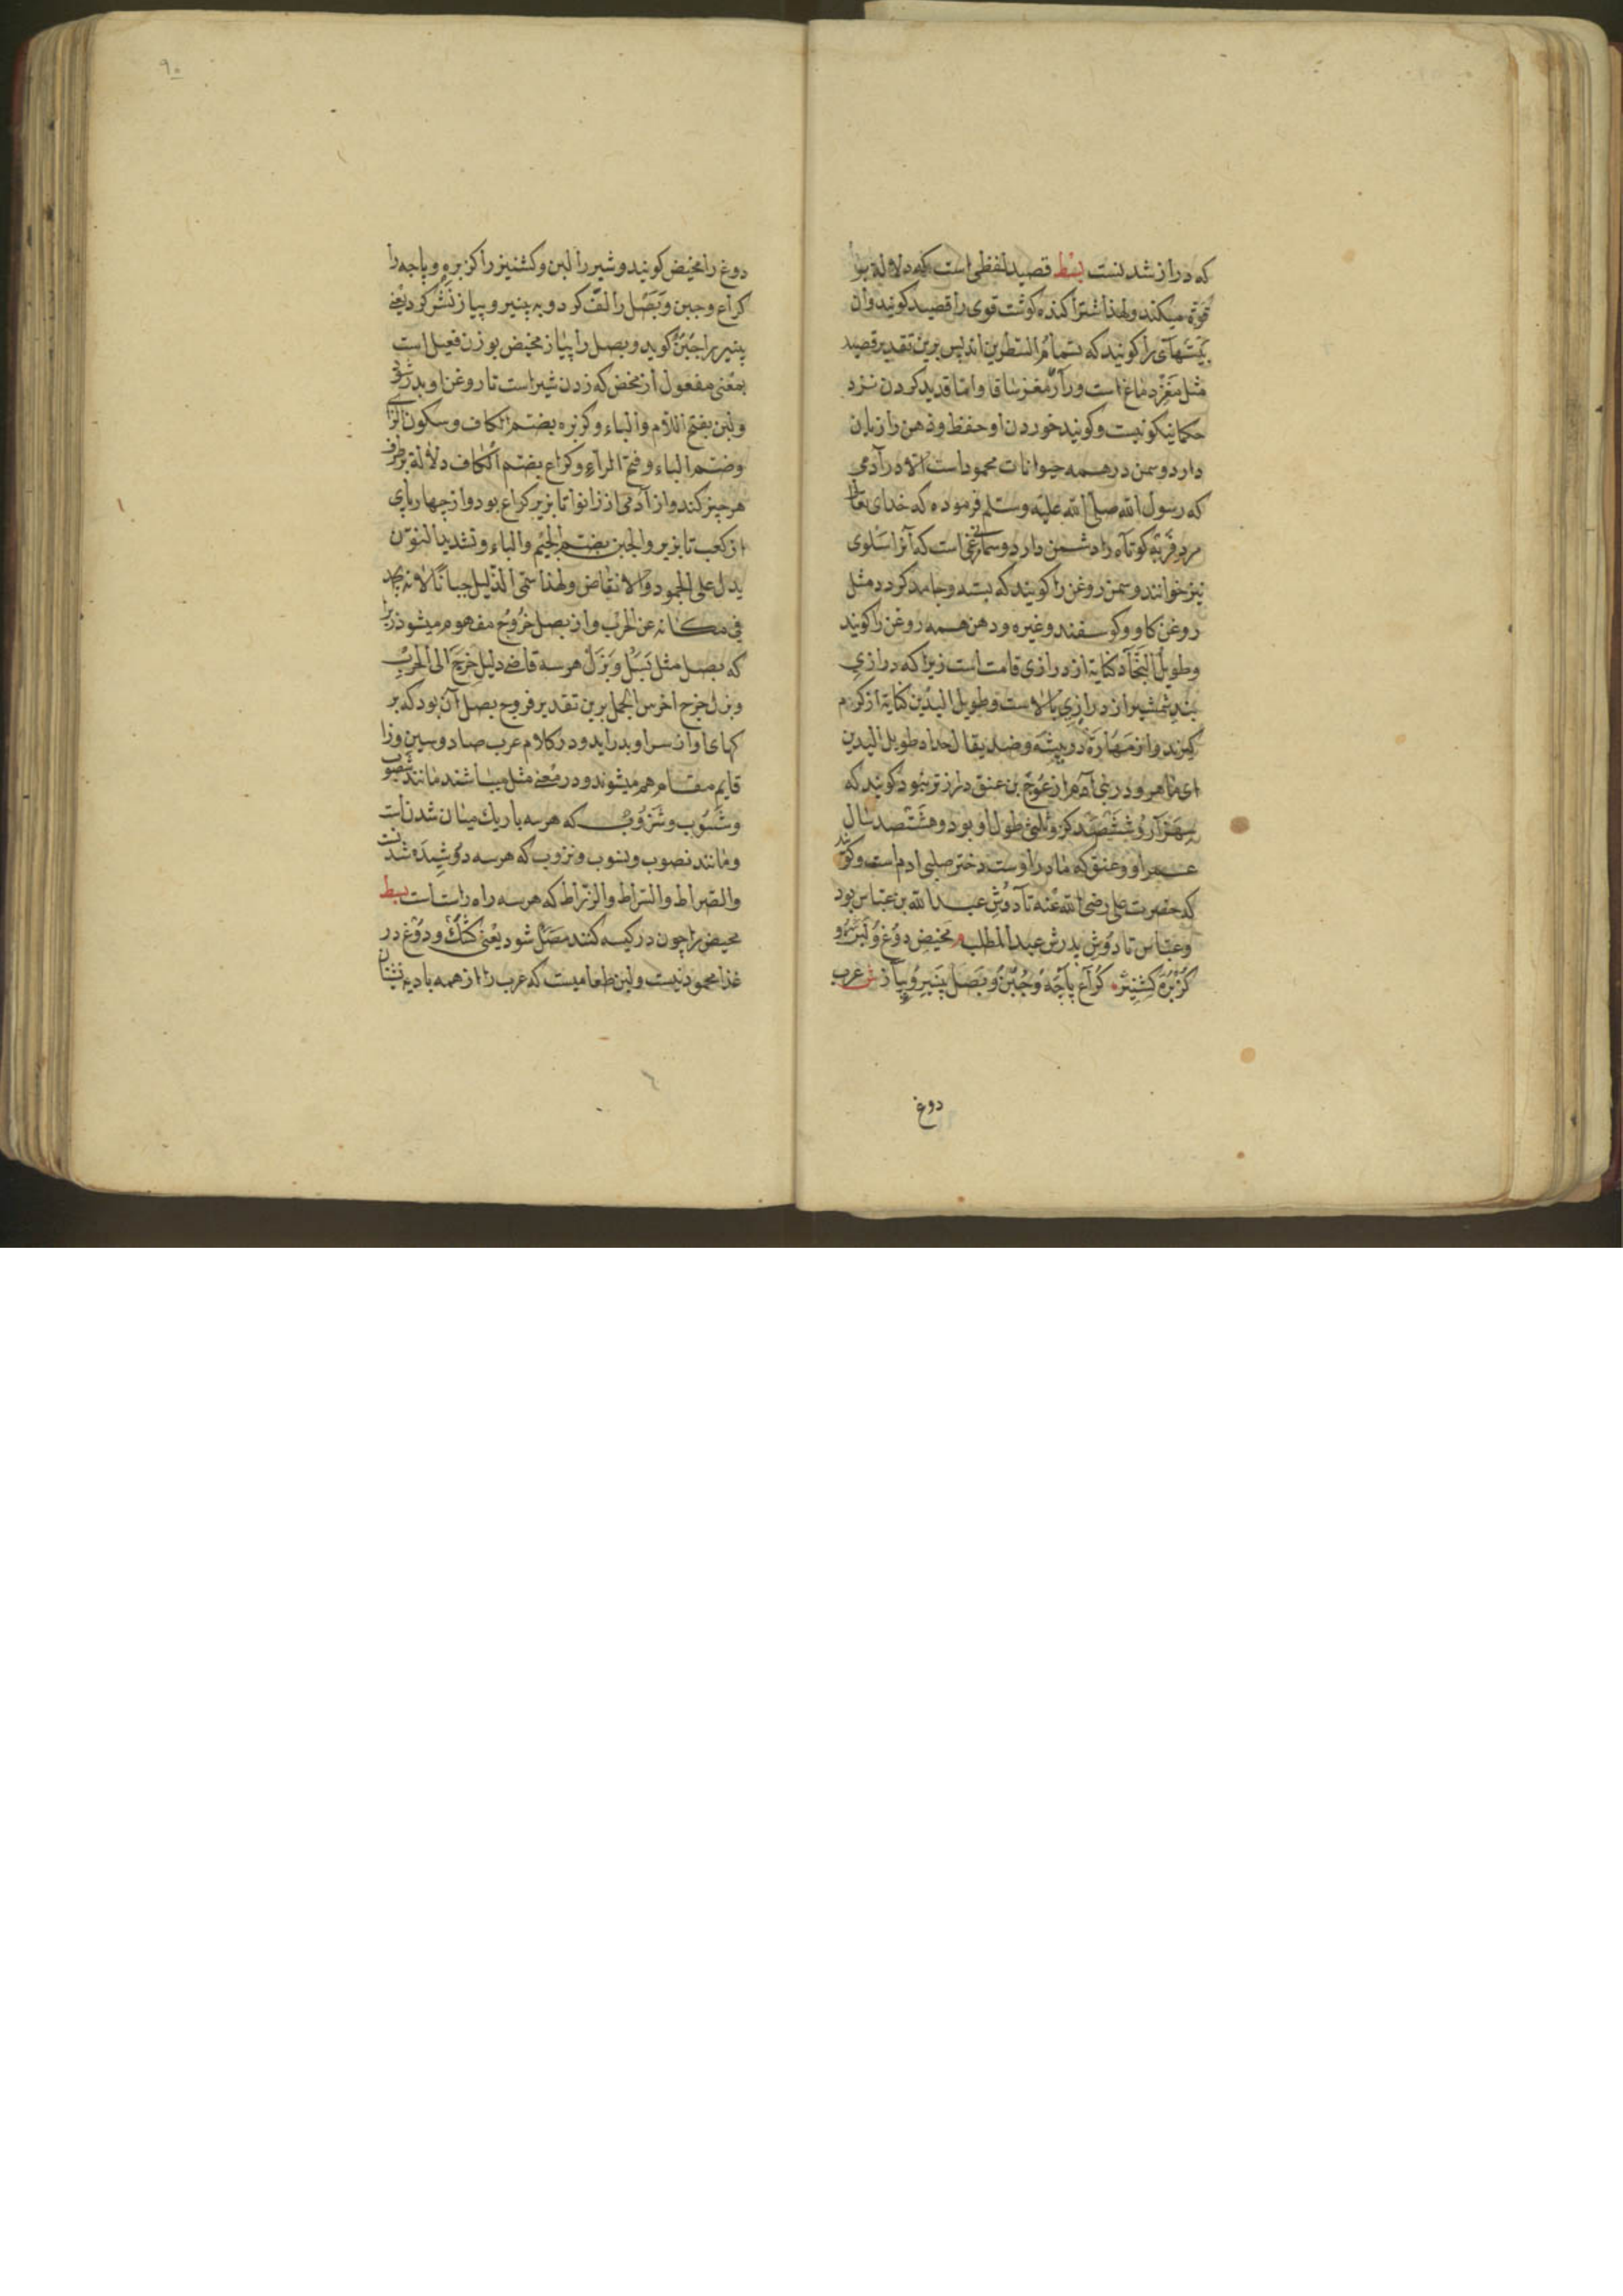 که دراز شدنست بسط قصید لفظی است که دلالة بر
قوّة میکند ولهذا شتر آکنده کوشت قوی را قصید کویند وآن
بیتهائی را کویند که بتمام الشطرین اند پس برین تقدیر قصید
مثل مغز دماغ است ورار مغز ساقا واما قدید کردن نزد
حکما نیکو نیست وکویند خوردن او حفظ وذهن را زیان
دارد وسمن در همه حیوانات محمود است الا در آدمی
که رسول الله صلی الله علیه وسلم فرموده که خدای تعالی
مرد فربه کوتاه را دشمن دارد وسمانی مرغی است که آنرا سلوی
نیز خوانند وسمن روغن را کویند که بسته وجامد کردد مثل
روغن کاو وکوسفند وغیره ودهن همه روغن را کویند
وطویل النجاد کنایة از درازی قامت است زیرا که درازی
بند شمشیر از درازی بالاست وطویل الیدین کنایة از کرم
کیرند واز مهارة در پیشه وضد یقال حداد طویل الیدین
ای ماهر ودر بنی آدم از عوج بن عنق دراز تر نبود کویند که
سه هزار وششصد کز طول او بود وهشتصد سال
عمر او وعنق که مادر اوست دختر صلبی ادم است وکویند
که حضرت علی رضی الله عنه تا دوش عبد الله بن عباس بود
وعباس تا دوش پدرش عبد المطلب م مخیض دوغ ولبن شیر و
کزبره کشنیز کراع پاچه وجبن وبصل پنیر وپیاز ش عرب
دوغ
٩٠
دوغ را مخیض کویند وشیر را لبن وکشنیز را کزبره وپاجه را
کراع وجبن وبصل را لف کرد وبه پنیر وپیاز نشر کرد یعنی
پنیر را جبن کوید وبصل را پیاز مخیض بوزن فعیل است
بمعنی مفعول از مخض که زدن شیر است تا روغن او بدر شود
ولبن بفتح اللام والباء وکزبره بضم الکاف وسکون الزای
وضم الباء وفتح الراء وکراع بضم الکاف دلالة بر طرف
هر چیز کند واز آدمی از زانو تا بزیر کراع بود واز چهار پای
از کعب تا بزیر والجبن بضم الجیم والباء وتشدید النون
یدل علی الجمود والانقاض ولهذا سمی الذلیل جبانا لانه یجمد
فی مکانه عن الحرب واز بصل خروج مفهوم میشود زیرا
که بصل مثل بسل وبزل هر سه قاضی دلیل خرج الی الحرب
وبزل خرج اخرس الجمل برین تقدیر فروع بصل آن بود که بر
کهای او از سر او بدر اید ودر کلام عرب صاد وسین وزا
قایم مقام هم میشوند ودر معنی مثل میباشند مانند شصوب
وشسوب وشزوب که هر سه باریک میان شدن است
ومانند نصوب ونسوب ونزوب که هر سه دوشیده شدنست
والصراط والسراط والزراط که هر سه راه راست است بسط
مخیض را چون در کیسه کنند مصل شود یعنی کشک ودوغ در
غذا محمود نیست ولبن طعامیست که عرب را از همه بادیه نشینان